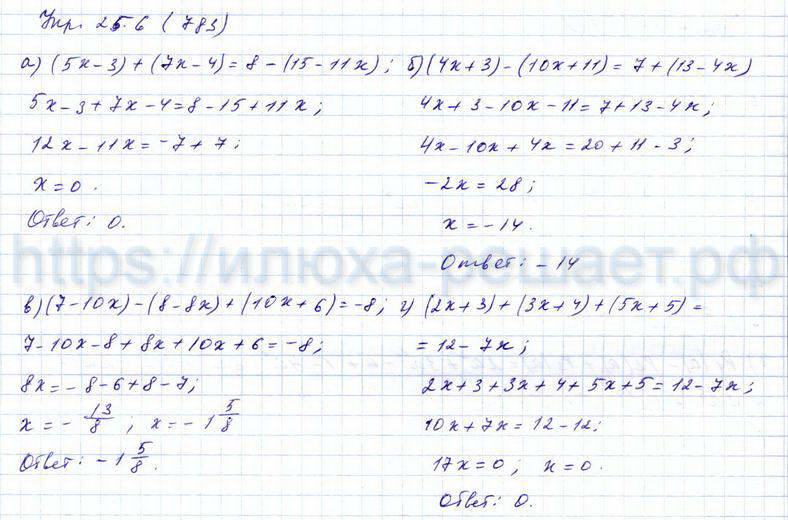 Упр. 256 (783)
а) (5x-3)+(7x-4)=8-(15-11x);
5x-3+7x-4=8-15+11x;
12x-11x=-7+7;
x=0.
Ответ: 0.
б) (4x+3)-(10x+11)=7+(13-4x)
4x+3-10x-11=7+13-4x;
4x-10x+4x=20+11-3;
-2x=28;
x=-14.
Ответ: -14
https://илюха-решает.рф
в) (7-10x)-(8-8x)+(10x+6)=-8;
7-10x-8+8x+10x+6=-8;
8x=-8-6+8-7;
x=-13/8; x=-1 5/8
Ответ: -1 5/8.
г) (2x+3)+(3x+4)+(5x+5)=
=12-7x;
2x+3+3x+4+5x+5=12-7x;
10x+7x=12-12;
17x=0; x=0.
Ответ: 0.